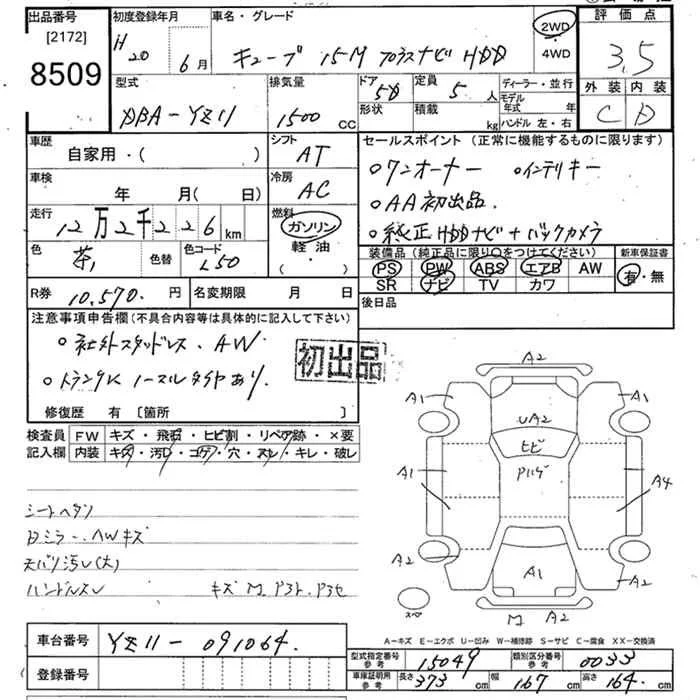 出品番号 初度登録年月 車名・グレード 2WD 評価点
[2172] H20 6月 キューブ 15M プラスナビ HDD 4WD 3.5
8509 型式 排気量 ドア 5D 定員 5人 ディーラー・並行 外装 内装
DBA-YZ11 1500 CC 形状 積載 kg モデル年式 年 C D
ハンドル 左・右
車歴 シフト セールスポイント (正常に機能するものに限ります)
自家用・( ) AT ○ワンオーナー ○インテリキー
車検 冷房 ○AA初出品.
年 月( 日) AC ○純正HDDナビ+バックカメラ
走行 燃料
12万2千226km ガソリン
色 茶 色替 色コード L50 軽油・
( ・ )
装備品 (純正品に限り○をつけてください) 新車保証書
PS PW ABS エアB AW 有・無
SR ナビ TV カワ
R券 10,570. 円 名変期限 月 日 後日品
注意事項申告欄(不具合内容等は具体的に記入して下さい)
○社外スタッドレス、AW
初出品
○トランクに ノーマルタイヤあり.
修復歴 有 〔箇所 〕
検査員 FW キズ・飛石・ヒビ割・リペア跡・×要
記入欄 内装 キズ・汚レ・コゲ・穴・スレ・キレ・破レ
シートヘタリ
Dミラー、AWキズ
天バリ汚レ(大)
ハンドルスレ キズ M
A2
A1 A1
UA2
ヒビ
A1 A4
A2 A1 A2
スペ M A2
A-キズ E-エクボ U-凹み W-補修跡 S-サビ C-腐食 XX-交換済
車台番号 YZ11-091064.
型式指定番号 参考 15049 類別区分番号 参考 0033
登録番号
車庫証明用 参考 長さ 373 cm 幅 167 cm 高さ 164. cm